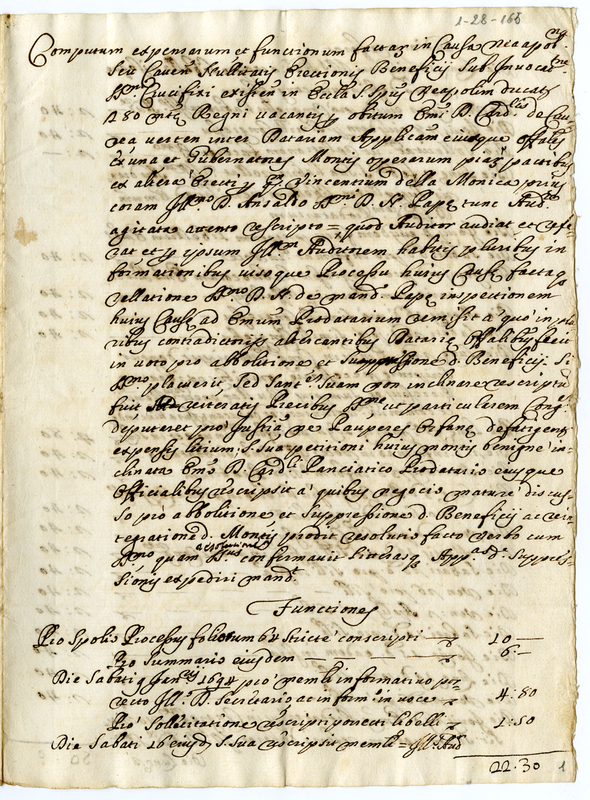 1-28-165
Computum expensarum et functionum factaꝝ in Causa Neap̃ol
seu Caven Nullitatis Erectionis Beneficij sub Invocat.ne
SS.mi Crucifixi existen in Eccl̃a S. Spũs Neapolim ducat
180 mt̃ę Regni vacantis p obitum Emi D. Card.lis de
vea verten inter Datariam Applicam eiusque offales
ex una et Gubernatores Montis operarum piaꝝ partibus
ex altera Erecti p q.m Vincentium della Monica prius
coram Ill.mo D. Ansaldo SS.mi D. N. Papę tunc Aud.re
agitata attento rescripto = quod Auditor audiat et refe-
rat et p ipsum Ill.m Auditorem habitis pluribus in
formationibus visoque Processu huius Causę factaq
rellatione SS.mo D. N. de mand. Papę inspectionem
huius Causę ad Emum Prodatarium remisit a' quo in plu
ribus contradictorijs altercantibus Datarię Offalibus fuit
in voto pro abbolitione et Suppressione d. Beneficij Si
SS.mo placuerit, Sed Sanct.s Suam non inclinare rescriptũ
fuit reiteratis Precibus SS.mo ut particularem Cong.em
deputaret pro Justitia ne Pauperes Orfanę defatigent
expensis litium; S. Sua petitioni huius montis benigne in-
clinata Emo D. Card.li Panciatico Prodatario eiusque
Officialibus rescripsit a' quibus negocio mature discus-
so pro abbolitione et Suppressione d. Beneficij ac rein
tegratione d. Montis prodijt resolutio facto verbo cum
SS.mo quam resolutionem SS.mus confirmavit litterasq App.as d. Suppres-
sionis expediri mand.t
Functiones
Pro Spolio Processus foliorum 64 Stricte conscripti — 10 —
Pro Summario eiusdem — — — 6: —
Die Sabati 9 Jan.rij 1694 pro mem.li informativo por-
recto Ill.o D. Secretario ac inform: in voce — 4:80
Pro' Sollicitatione rescripti porrecti libelli — 1:50
Die Sabati 16 eiusd. S. Sua rescripsit mem.li =
22.30
1